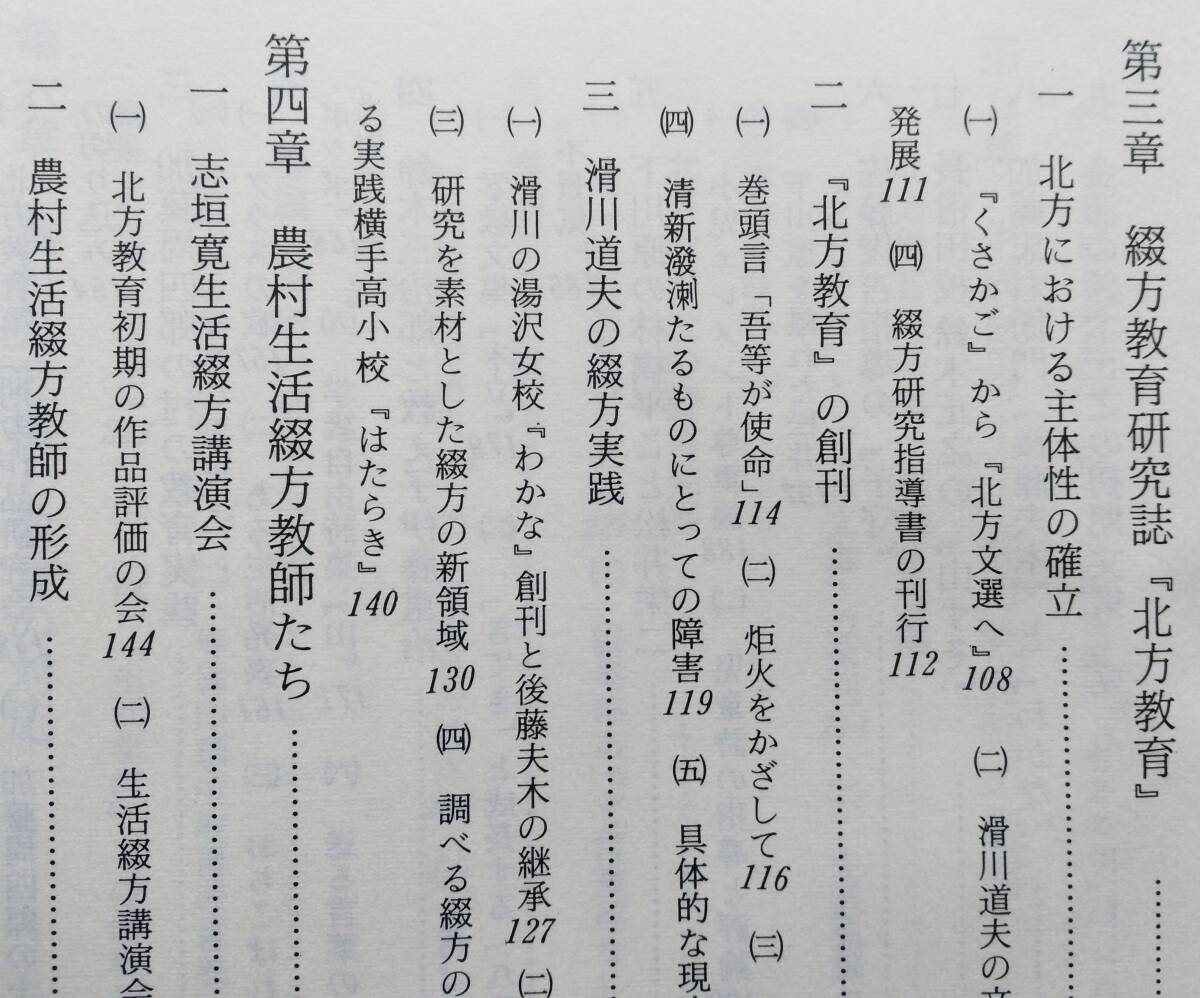 第三章　綴方教育研究誌『北方教育』…………
一　北方における主体性の確立…………
㈠　『くさかご』から『北方文選へ』108　㈡　滑川道夫の
発展111　㈣　綴方研究指導書の刊行112
二　『北方教育』の創刊…………
㈠　巻頭言「吾等が使命」114　㈡　炬火をかざして116　㈢
㈣　清新潑溂たるものにとっての障害119　㈤　具体的な現
三　滑川道夫の綴方実践…………
㈠　滑川の湯沢女校『わかな』創刊と後藤夫木の継承127　㈡
㈢　研究を素材とした綴方の新領域130　㈣　調べる綴方の
る実践横手高小校『はたらき』140
第四章　農村生活綴方教師たち…………
一　志垣寛生活綴方講演会…………
㈠　北方教育初期の作品評価の会144　㈡　生活綴方講演会
二　農村生活綴方教師の形成…………